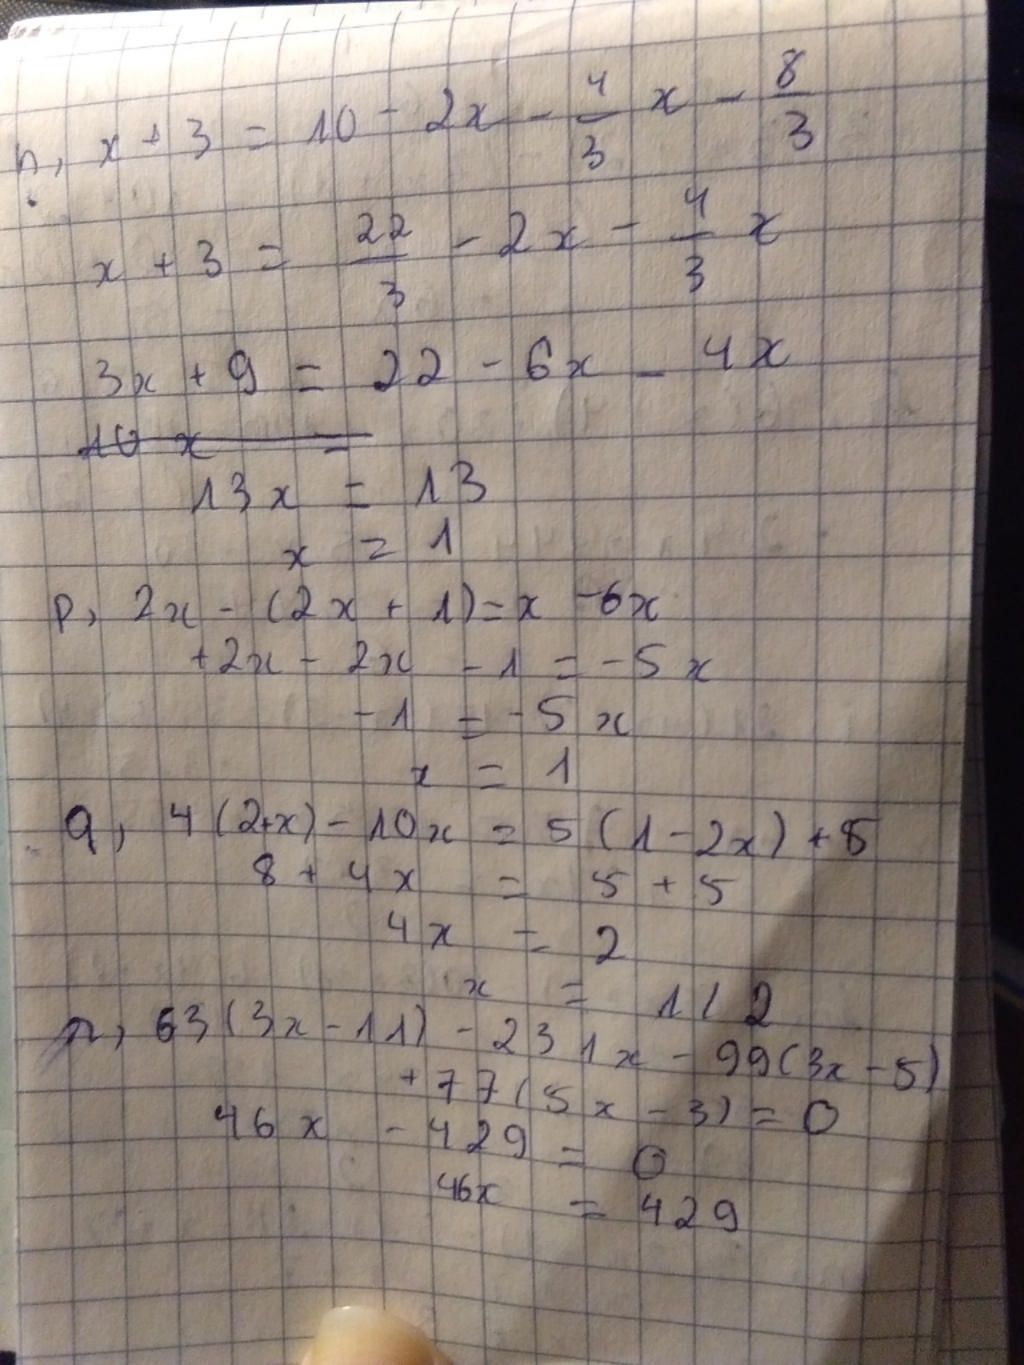 n, x + 3 = 10 - 2x - 4/3 x - 8/3
x + 3 = 22/3 - 2x - 4/3 x
3x + 9 = 22 - 6x - 4x
10 x =
13x = 13
x = 1
p, 2x - (2x + 1) = x - 6x
+2x - 2x - 1 = -5x
-1 = -5x
x = 1
q, 4(2+x) - 10x = 5(1 - 2x) + 5
8 + 4x = 5 + 5
4x = 2
x = 1/2
r, 63(3x - 11) - 231x - 99(3x - 5)
+77(5x - 3) = 0
46x - 429 = 0
46x = 429